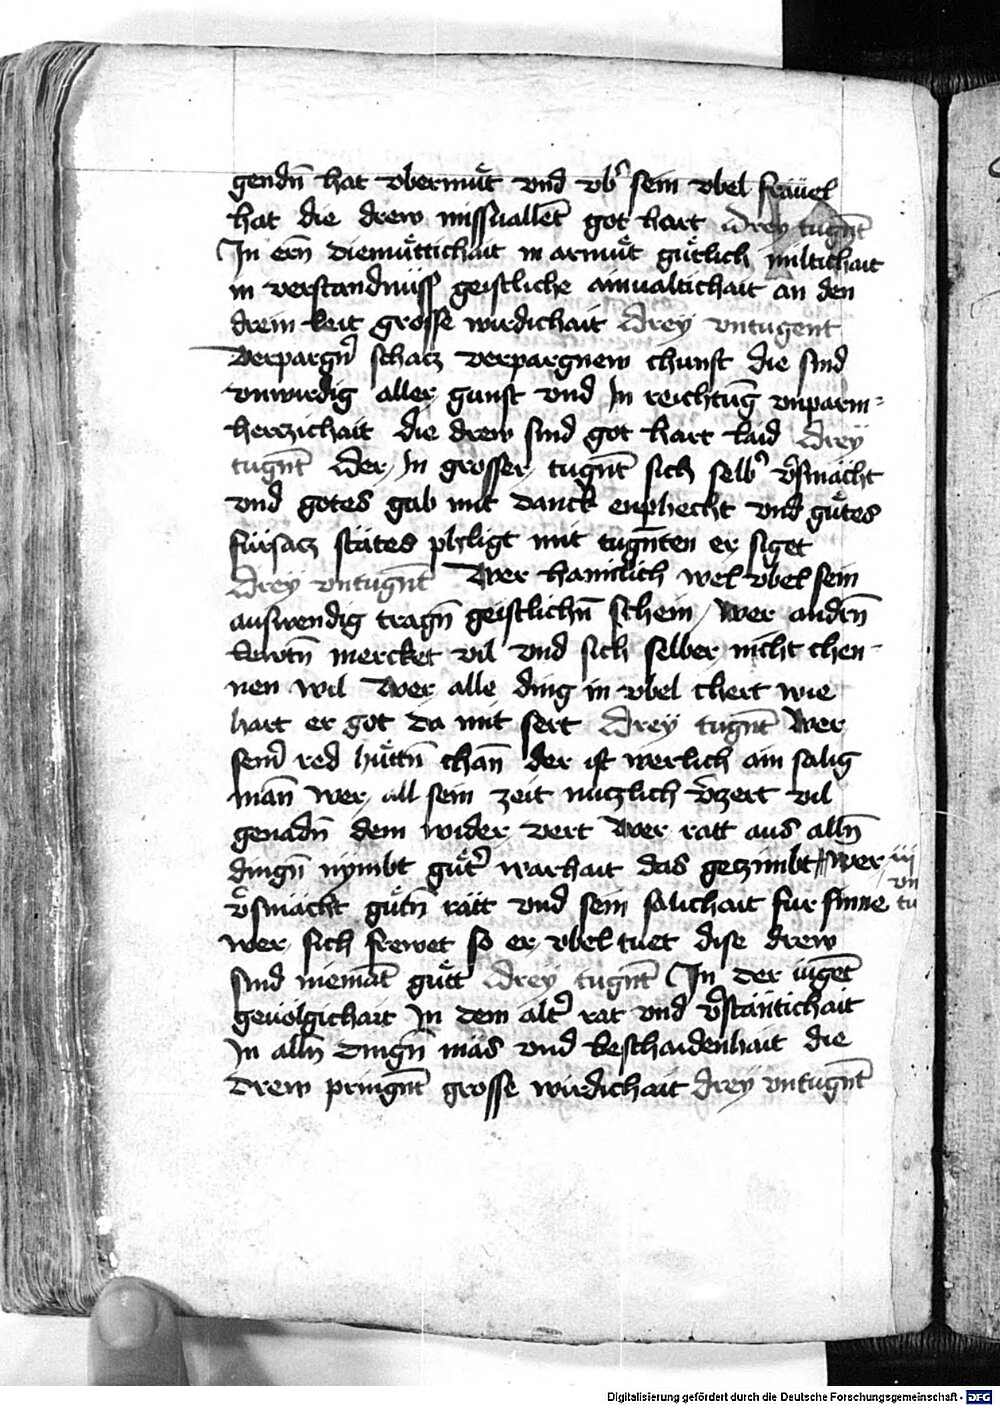 gendn̄ hat vbermuͤt vnd vb' sein vbel fräuel
hat die drew missuallet̄ got hart Drey tugn̄t
In ern̄ diemuͤttichait in armuͤt guͤtlich miltichait
in verstandnüss geistliche ainualtichait an den
drein leit grosse wirdichait Drey vntugent
verpargn' schacz verpargnew chunst die sind
vnwirdig aller gunst vnd In reichtūg vnparm⸗
herczichait die drew sind got hart laid Drey
tugn̄t Der In grosser tugn̄t sich selb' v'smächt
vnd gotes gab mit danck enphecht vnd guͤtes
fürsacz stätes phligt mit tugn̄ten er siget
Drey vntugn̄t Wer haimlich wel vbel sein
auswendig tragn̄ geistlichn̄ schein wer andrn̄
lewtn̄ mercket vil vnd sich selber nicht chen⸗
nen wil Wer alle ding in vbel chert wie
hart er got da mit sert Drey tugn̄t Wer
sein' red huͤttn̄ chan̄ der ist werlich ain salig
man̄ wer all sein zeit nuczlich v'czert vil
genadn̄ dem wider vert Wer ratt aus alln̄
dingn̄ nymbt guͤt' warhait das geczimbt wer iij
v'smächt guͤtn̄ rätt vnd sein salichait fur sinne vn
tu
wer sich frewet so er vbel tuet dise drew
sind niemāt guͤtt drey tugn̄t In der iuget̄
geuolgichait In dem alt' rat vnd v'stäntichait
In alln̄ dingn̄ mäs vnd beschaidenhait die
drew pringn̄t grosse wirdichait drey vntugn̄t
Digitalisierung gefördert durch die Deutsche Forschungsgemeinschaft - DFG